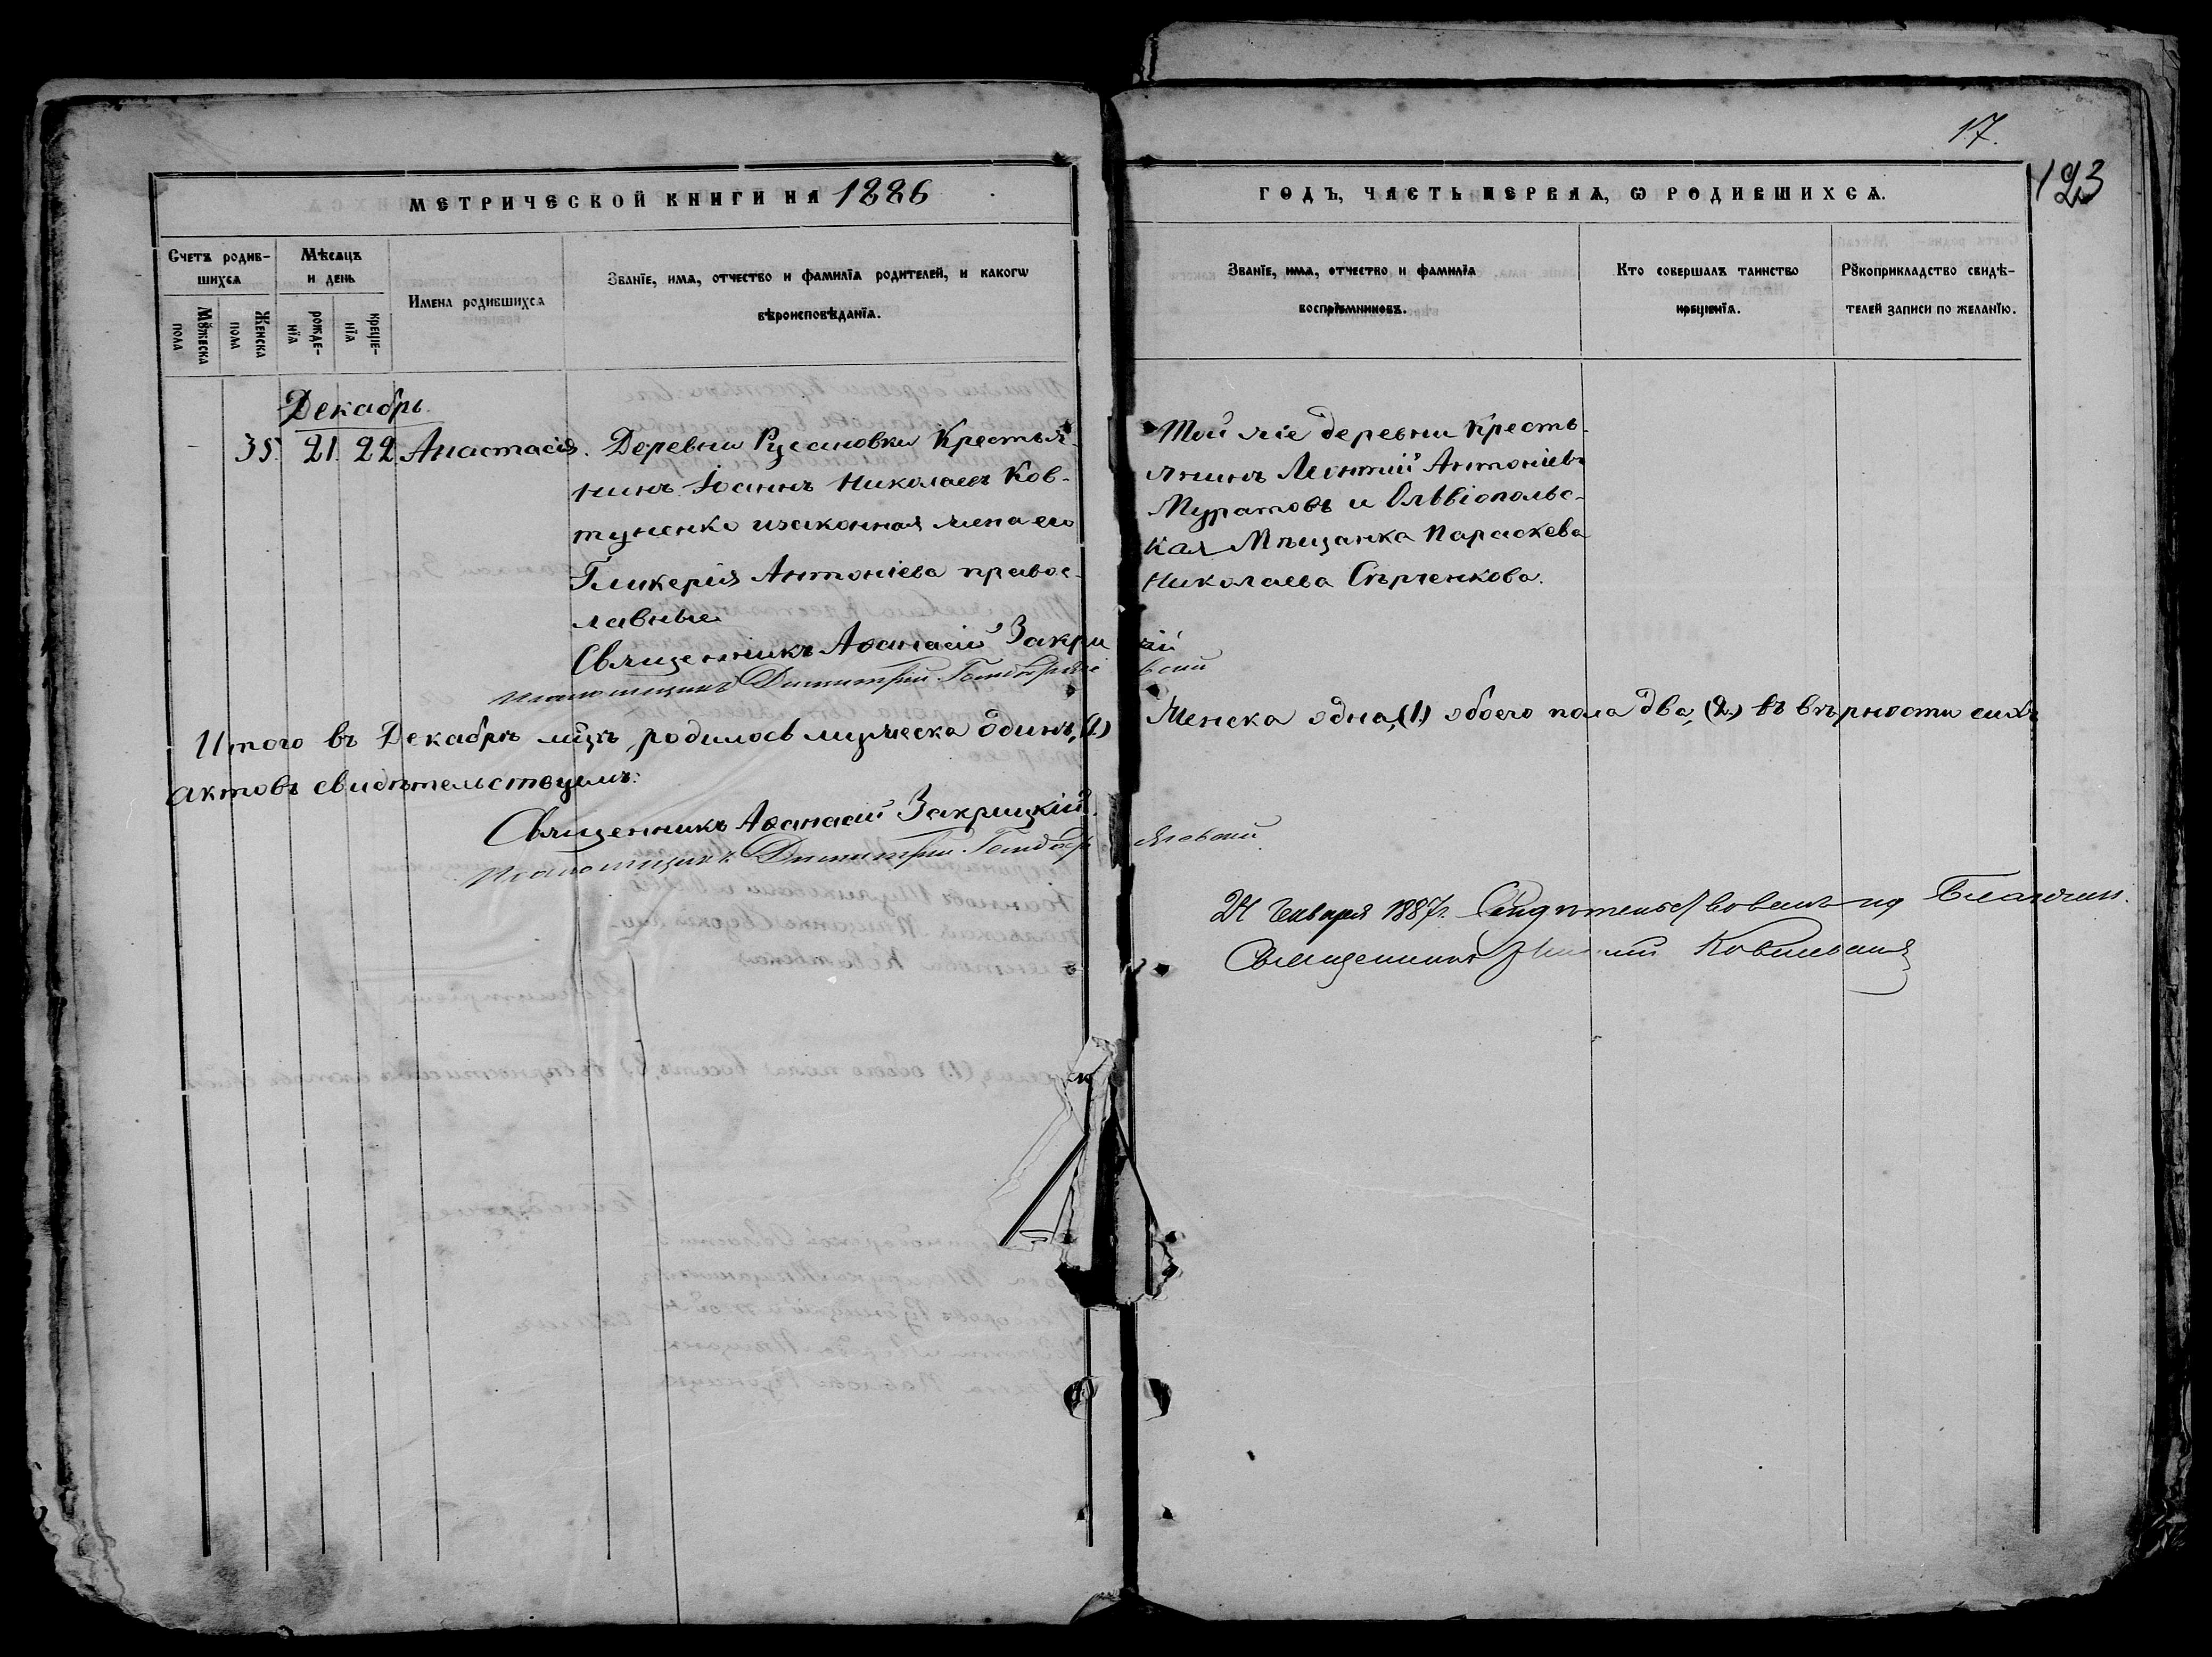 17.
123
МЕТРИЧЕСКОЙ КНИГИ НА 1886
ГОДЪ, ЧАСТЬ ПЕРВАѦ, Ѡ РОДИВШИХСѦ.
Счетъ родив-
шихсѧ
Мꙋжеска
пола
Женска
пола
Мѣсѧцъ
и день
рожде-
нїѧ
креще-
нїѧ
Имена родившихсѧ
Званїе, имѧ, отчество и фамилїѧ родителей, и какогѡ
вѣроисповѣданїѧ.
Званїе, имѧ, отчество и фамилїѧ
воспрїемниковъ.
Кто совершалъ таинство
крещенїѧ.
Рꙋкоприкладство свидѣ-
телей записи по желанїю.
Декабрь
35. 21. 22. Анастасія. Деревни Русановки Крестья-
нинъ Іоаннъ Николаевъ Ков-
туненко и законная жена его
Гликерія Антоніева правос-
лавные.
Той же деревни Кресть-
янинъ Леонтій Антоніевъ
Муратовъ и Ольвіопольс-
кая Мѣщанка Параскева
Николаева Сѣрченкова.
Священникъ Аѳанасій Закрицкій
Псаломщикъ Димитрій
Итого въ Декабрѣ мцѣ родилось мужеска одинъ, (1.) Женска одна, (1.) обоего пола два, (2.) въ вѣрности сихъ
актовъ свидѣтельствуемъ:
Священникъ Аѳанасій Закрицкій.
Псаломщикъ Димитрій
24 Января 1887 г. Благочин.
Священникъ